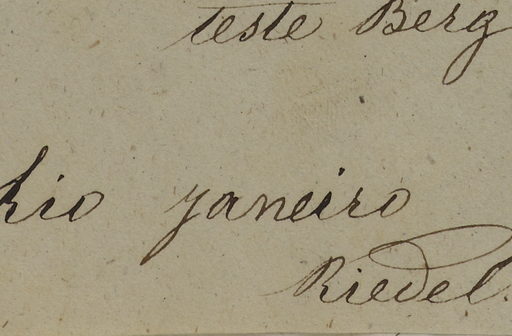 teste Berg
Rio janeiro
Riedel.